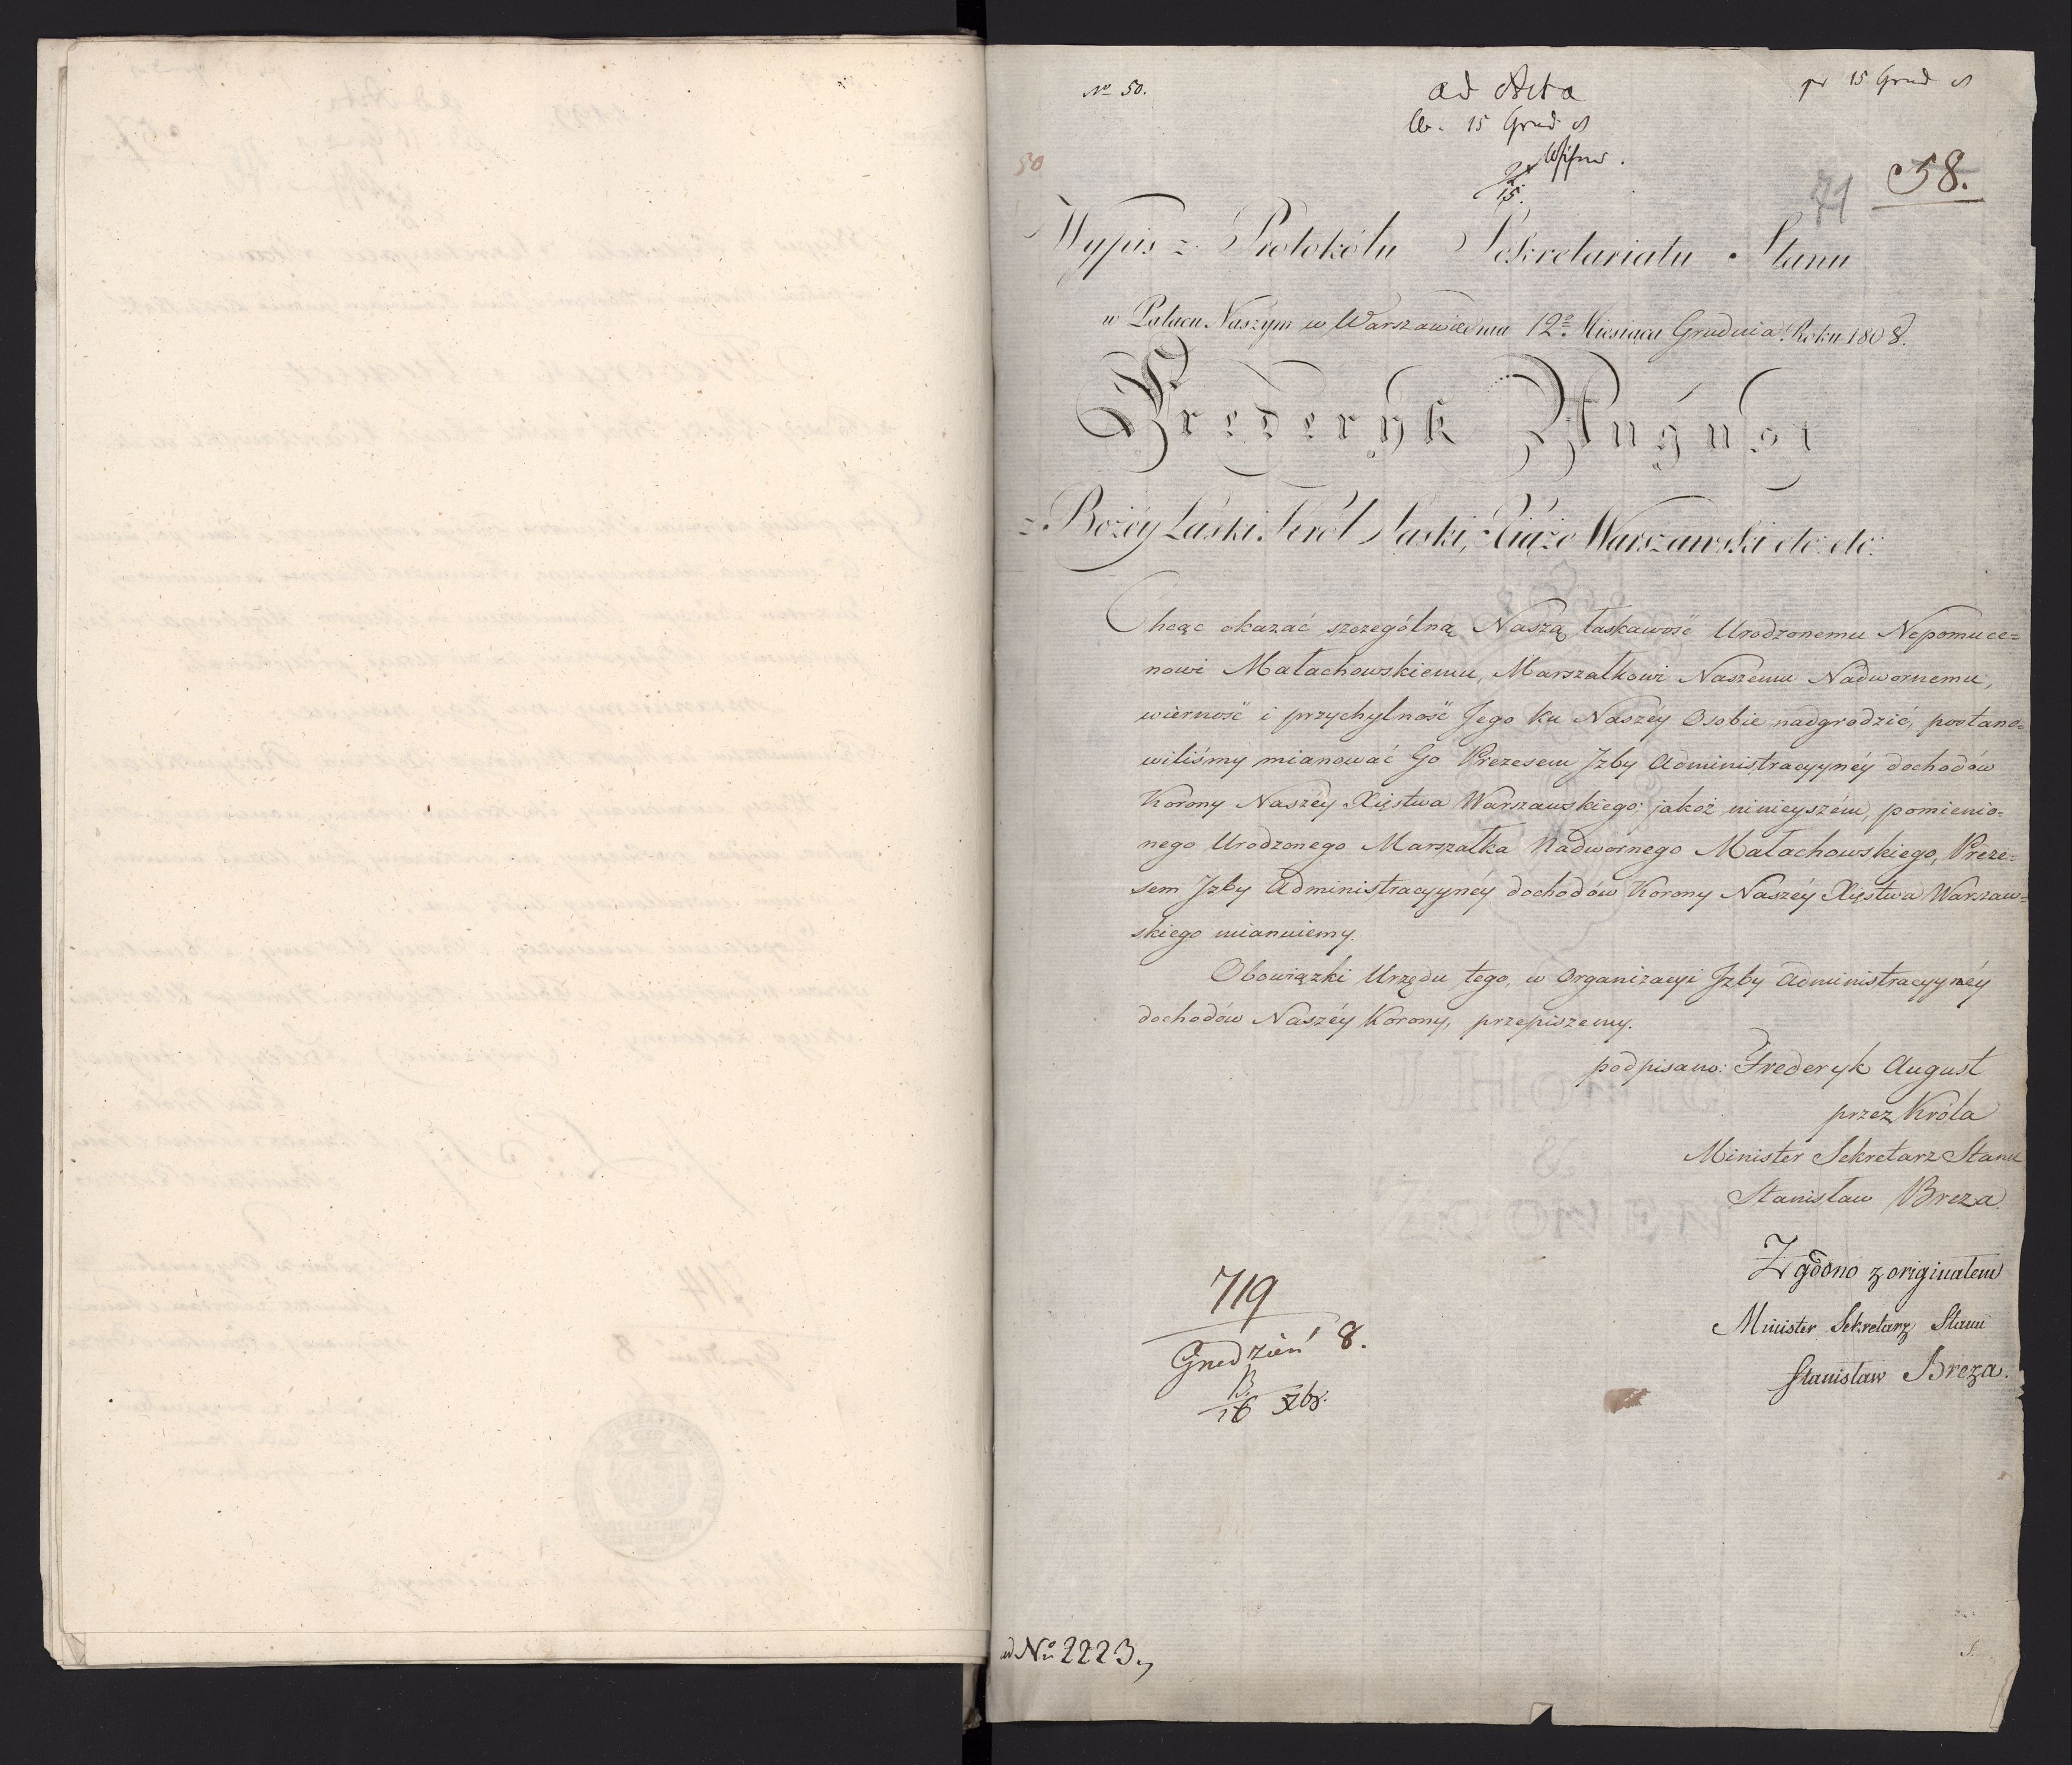 No 50.
ad Acta
15 Grud
pr 15 Grud
50
15.
71
58.
Wypis z Protokółu Sekretariatu Stanu
w Pałacu Naszym w Warszawie dnia 12o Miesiąca Grudnia Roku 1808.
Frederyk August
z Bożéy Łaski Król Saski, Xiąże Warszawski etc: etc:
Chcąc okazać szczególną Naszą łaskawość Urodzonemu Nepomuce=
nowi Małachowskiemu, Marszałkowi Naszemu Nadwornemu,
wierność i przychylność Jego ku Naszéy Osobie nadgrodzić, postano=
wiliśmy mianować Go Prezesem Jzby Administracyynéy dochodów
Korony Naszéy Xięstwa Warszawskiego; jakoż ninieyszém, pomienio=
nego Urodzonego Marszałka Nadwornego Małachowskiego, Preze=
sem Jzby Administracyynéy dochodów Korony Naszéy Xięstwa Warszaw=
skiego mianuiemy.
Obowiązki Urzędu tego, w Organizacyi Jzby Administracyynéy
dochodów Naszéy Korony, przepiszemy.
podpisano: Frederyk August
przez Króla
Minister Sekretarz Stanu
Stanisław Breza.
Zgodno z originałem
Minister Sekretarz Stanu
Stanisław Breza.
719
Grudzień 8.
16 Xbr.
ad No 2223.